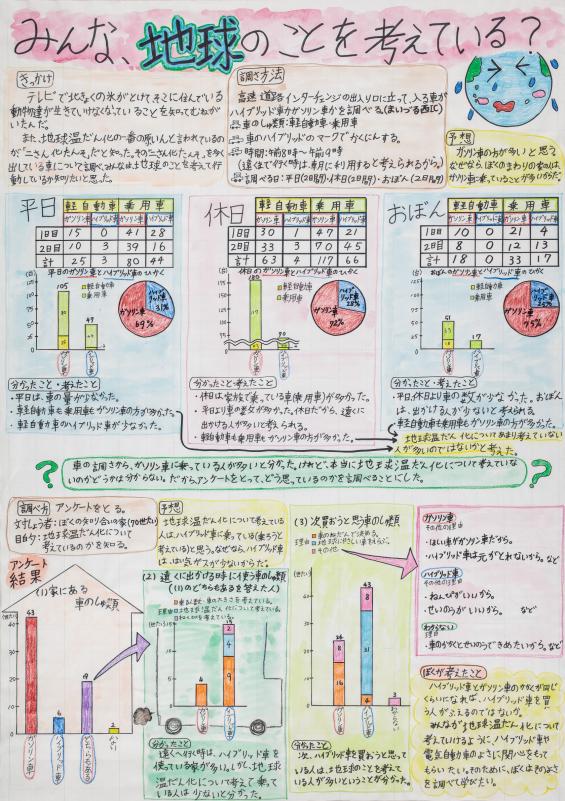 みんな、地球のことを考えている?
きっかけ
テレビで北きょくの氷がとけて、そこに住んでいる
動物達が生きていけなくなっていることを知ってむねが
いたんだ。
また、地球温だん化の一番の原いんと言われているの
が「二さん化たんそ」だと知った。その二さん化たんそを多く
出している車について調べ、みんなは土地球のことを考えて行
動しているか知りたいと思った。
調さ方法
高速道路インターチェンジの出入り口に立って、入る車が
ハイブリッド車かガソリン車かを調べる
車のしゅ類:軽自動車・乗用車
車のハイブリッドのマークでかくにんする。
時間:午前8時~午前9時
調べる日:平日(2日間)・休日(2日間)・おぼん(2日間)
予想
ガソリン車の方が多いと思う
なぜなら、ぼくのまわりの家の人は
ガソリン車に乗っていることが多いからだ。
平日
軽自動車 乗用車
ガソリン車 ハイブリッド車 ガソリン車 ハイブリッド車
1日目 15 0 41 28
2日目 10 3 39 16
合計 25 3 80 44
平日のガソリン車とハイブリッド車のひかく
(台)
軽自動車
乗用車
105
47
ガソリン車 69%
ハイブリッド車 31%
ガソリン車
ハイブリッド車
分かったこと・考えたこと
・平日は、車の量が少なかった。
・軽自動車も乗用車もガソリン車の方が多かった。
・軽自動車のハイブリッド車が少なかった。
休日
軽自動車 乗用車
ガソリン車 ハイブリッド車 ガソリン車 ハイブリッド車
1日目 30 1 47 21
2日目 33 3 70 45
合計 63 4 117 66
休日のガソリン車とハイブリッド車のひかく
(台)
軽自動車
乗用車
180
70
ガソリン車 72%
ハイブリッド車 28%
ガソリン車
ハイブリッド車
分かったこと・考えたこと
・休日は家族で乗っている車(乗用車)が多かった。
・平日より車の数が多かった。休日だから、遠くに
出かける人が多いと考えられる。
・軽自動車も乗用車もガソリン車の方が多かった。
おぼん
軽自動車 乗用車
ガソリン車 ハイブリッド車 ガソリン車 ハイブリッド車
1日目 10 0 21 4
2日目 8 0 12 13
合計 18 0 33 17
おぼんのガソリン車とハイブリッド車のひかく
(台)
軽自動車
乗用車
51
17
ガソリン車 75%
ハイブリッド車 25%
ガソリン車
ハイブリッド車
分かったこと・考えたこと
・平日、休日より車の数が少なかった。おぼん
は、出かける人が少ないと考えられる。
・軽自動車も乗用車もガソリン車の方が多かった。
地球温だん化についてあまり考えていない
人が多いのではないかと考えた。
車の調さから、ガソリン車に乗っている人が多いと分かった。けれど、本当に地球温だん化について考えていな
いのかどうかは分からない。だから、アンケートをとって、どう思っているのかを調べることにした。
調べ方
アンケートをとる。
対しょう者:ぼくの知り合いの家(70世たい)
目的:地球温だん化について
考えているのかを知る。
予想
地球温だん化について考えている
人はハイブリッド車に乗っている(乗ろうと
考えている)と思う。なぜなら、ハイブリッド車
は、はい気ガスが少ないからだ。
アンケート結果
(1)家にある車のしゅ類
(世たい)
43
6
19
2
ガソリン車
ハイブリッド車
どちらもある
ない
(2)遠くに出かける時に使う車のしゅ類
((1)のどちらもあるを答えた人)
理由
車の広さや車の大きさを考えている。
地球温だん化について考えている。
(世たい)
4
4
15
2
4
9
ガソリン車
ハイブリッド車
分かったこと
遠くへ行く時は、ハイブリッド車を
使っている家が多い。しかし、地球
温だん化について考えて乗って
いる人は少ないと分かった。
(3)次買おうと思う車のしゅ類
理由
車のねだんで決める。
地球にやさしい車をえらぶ。
その他。
(世たい)
24
8
16
43
8
31
4
3
ガソリン車
ハイブリッド車
わからない
分かったこと
次、ハイブリッド車を買おうと思って
いる人は、地球のことを考えて
いる人が多いということが分かった。
ガソリン車
その他の理由
・ほしい車がガソリン車だから。
・ハイブリッド車は元がとれないから。など
ハイブリッド車
その他の理由
・ねんぴがいいから。
・せいのうがいいから。 など
わからない
理由
・車のかかくとせいのうできめたいから。など
ぼくが考えたこと
ハイブリッド車とガソリン車のかかくが同じ
くらいになれば、ハイブリッド車を買
う人がふえるのではないか。
みんなが地球温だん化につい
て考えていけるように、ハイブリッド車や
電気自動車のよさに関心をもって
もらいたい。そのために、ぼくはそのよさ
を調べて学びたい。